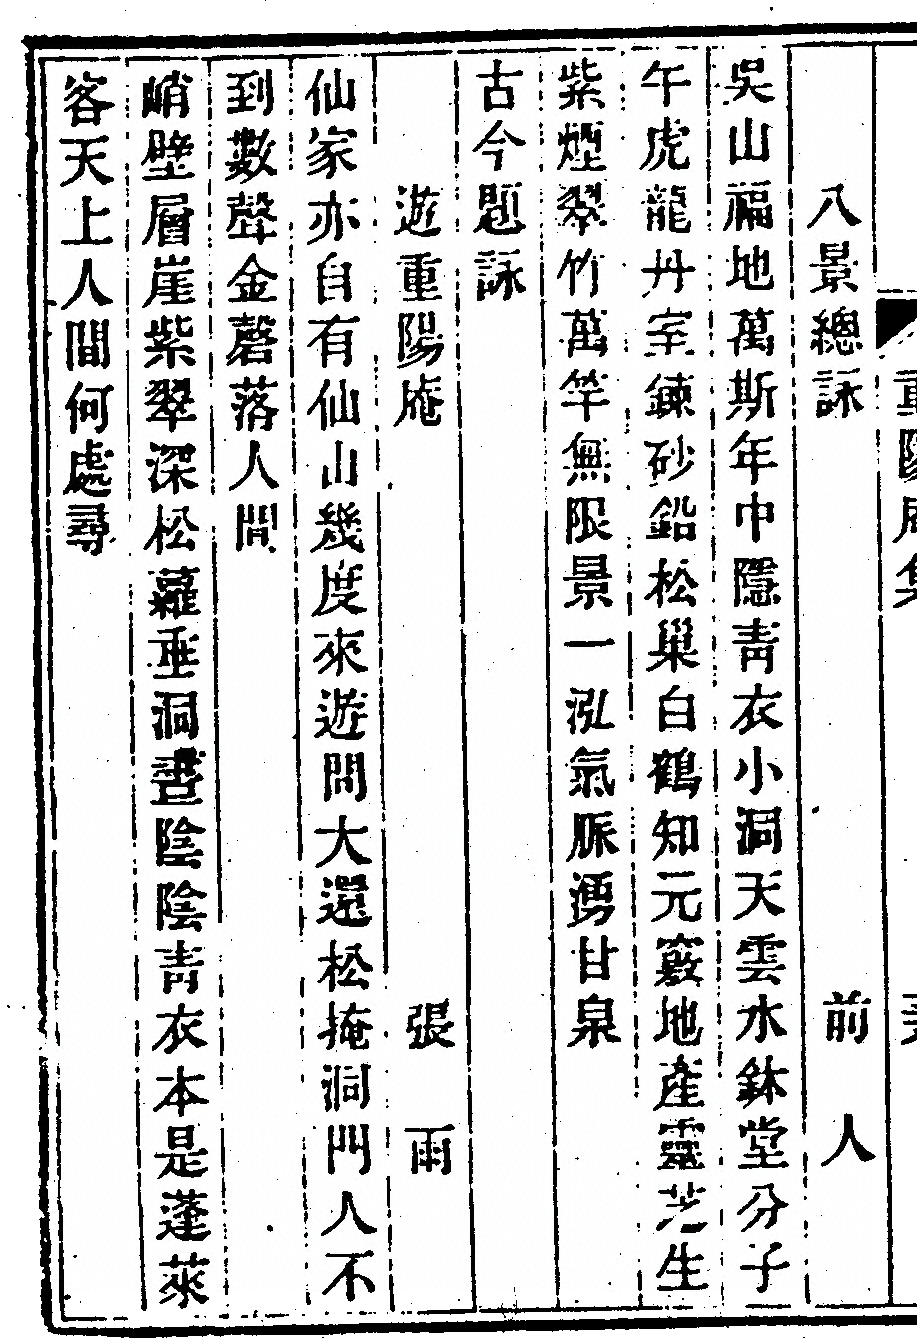 重陽庵集
八景總詠 前人
吳山福地萬斯年中隱青衣小洞天雲水鉢堂分子
午虎龍丹室鍊砂鉛松巢白鶴知元竅地產靈芝生
紫煙翠竹萬竿無限景一泓氣脈湧甘泉
古今題詠
遊重陽庵 張雨
仙家亦自有仙山幾度來遊問大還松掩洞門人不
到數聲金磬落人間
峭壁層崖紫翠深松蘿垂洞晝陰陰青衣本是蓬萊
客天上人間何處尋